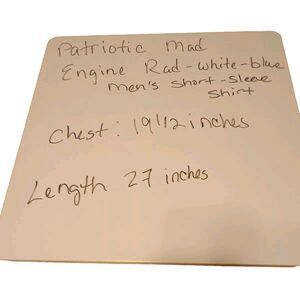 Patriotic Mad
Engine Rad-white-blue
men's short-sleeve
shirt
Chest: 19 1/2 inches
Length 27 inches